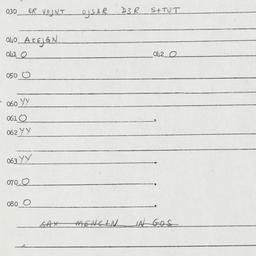 030 ER VOJVT OJSAR D3R S+TVT
040 AKEJGN
041 O 042 O
050 O
060 YY
061 O
062 YY
063 YY
070 O
080 O
GAX MENCIN IN GOS